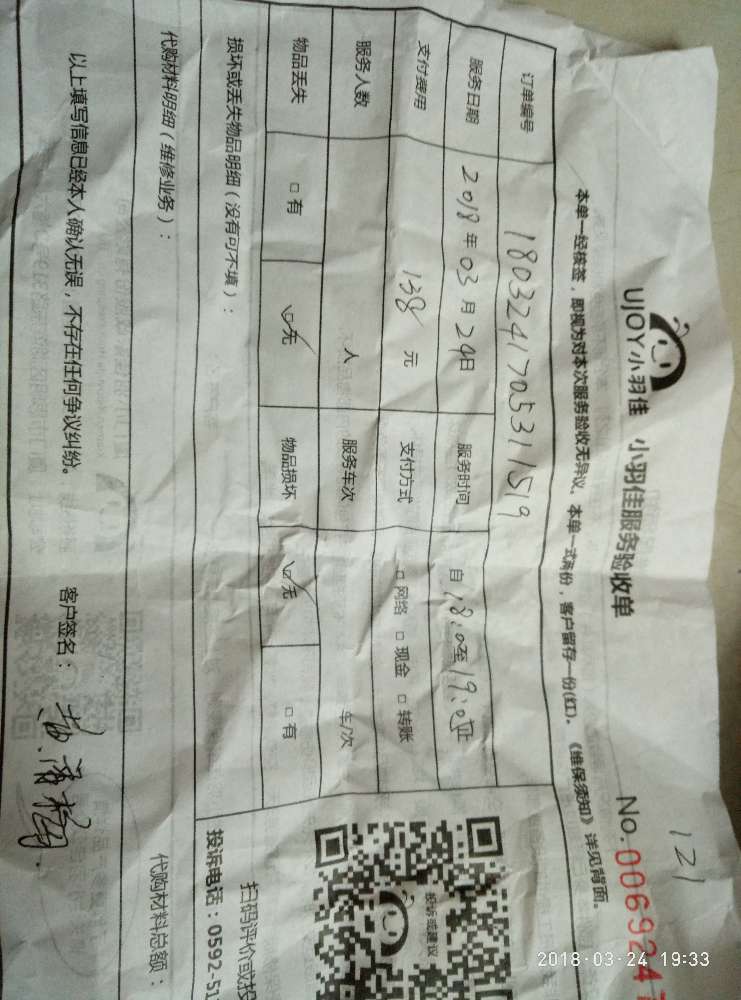 121
UJOY小羽佳 小羽佳服务验收单 No.0069247
本单一经核签，即视为对本次服务验收无异议。本单一式两份，客户留存一份(红)。《维保须知》详见背面。
订单编号 1803241705311519
服务日期 2018年03月24日 服务时间 自18:0至19:0止
支付费用 138元 支付方式 □网络 □现金 □转账
服务人数 人 服务车次 车/次
物品丢失 □有 ☑无 物品损坏 ☑无 □有
损坏或丢失物品明细（没有可不填）：
投诉或建议
扫码评价或投
投诉电话：0592-51
代购材料明细（维修业务）： 代购材料总额：
以上填写信息已经本人确认无误，不存在任何争议纠纷。 客户签名：
2018-03-24 19:33